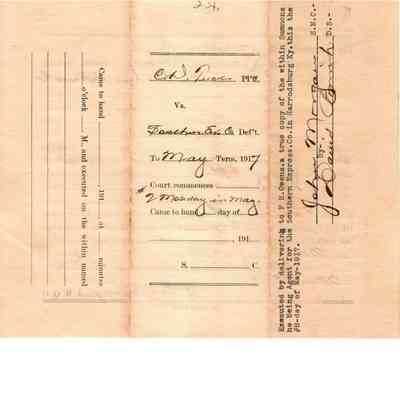 C. D. Pltff.
Vs.
Southern Ex. Co Def't.
To May Term, 1917
Court commences
2 Monday in May.
Came to hand day of
, 191
S. C.
Came to hand 191 at minutes
o'clock M., and executed on the within named
Executed by delivering to F H. Owens, a true copy of the within Summons
he Being Agent for the Southern Express.Co.in Harrodsburg Ky.this the
-day of May-1917.
John Morgan S.M.C.-
By- D.S.-